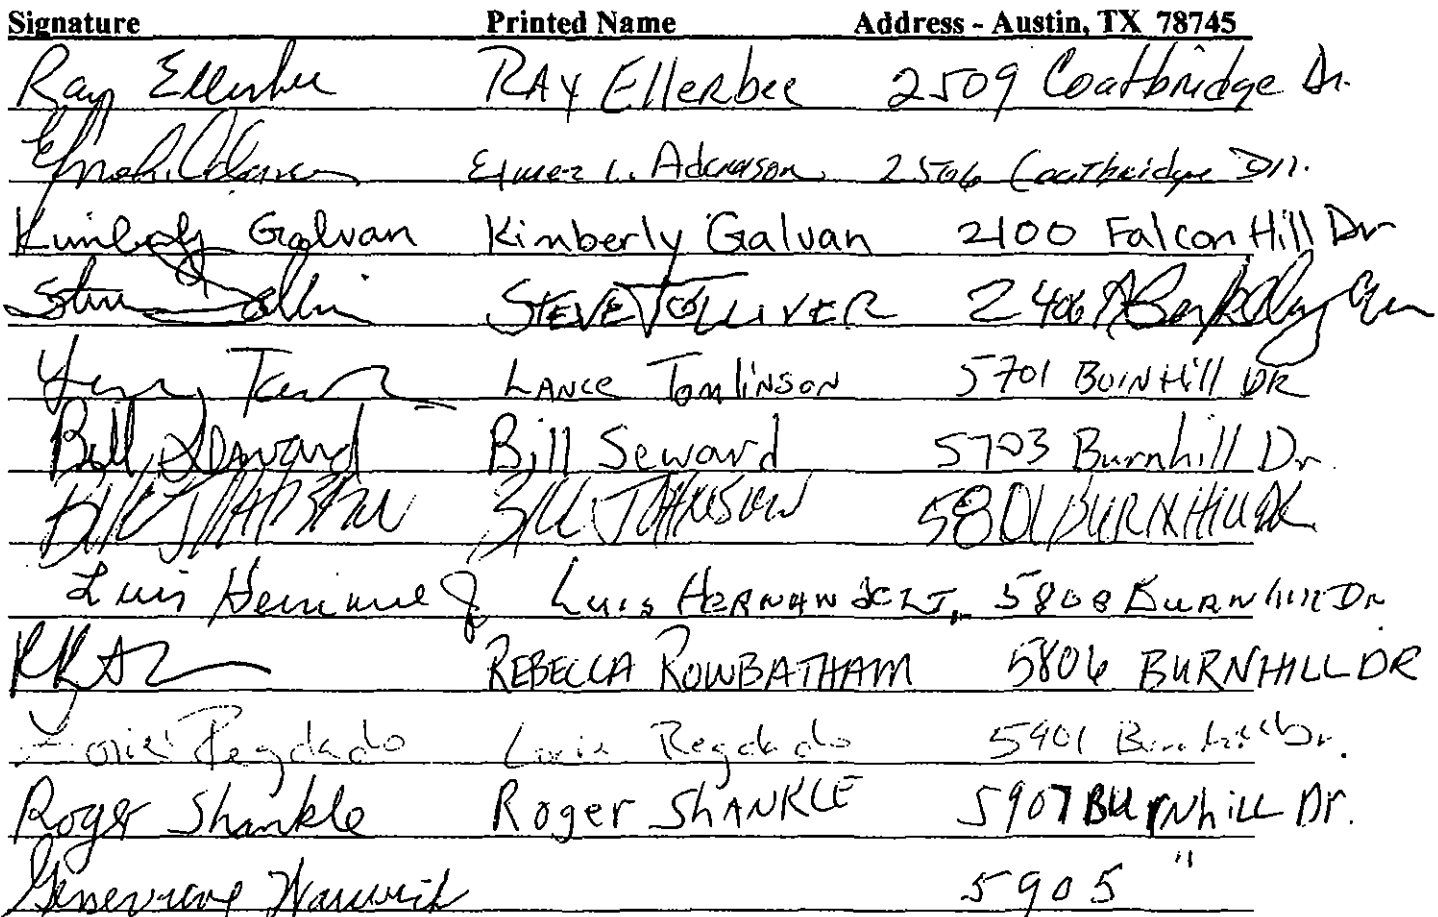 Signature Printed Name Address - Austin, TX 78745
Ray Ellerbee RAY Ellerbee 2509 Coatbridge Dr.
Elmer L. Adamson 2506 Coatbridge Dr.
Kimberly Galvan Kimberly Galvan 2100 Falcon Hill Dr
STEVE TOLLIVER 2406
LANCE TOMLINSON 5701 BURNHill DR
Bill Seward Bill Seward 5703 Burnhill Dr.
BILL JOHNSON BILL JOHNSON 5801 BURNHILL DR
Luis LUIS HERNANDEZ J. 5808 BURNHILL Dr
REBECCA ROWBATHAM 5806 BURNHILL DR
Regdado Regdado 5901 Dr.
Roger Shankle Roger ShANKLE 5907 BURNhiLL Dr.
Genevieve Warwick 5905 "